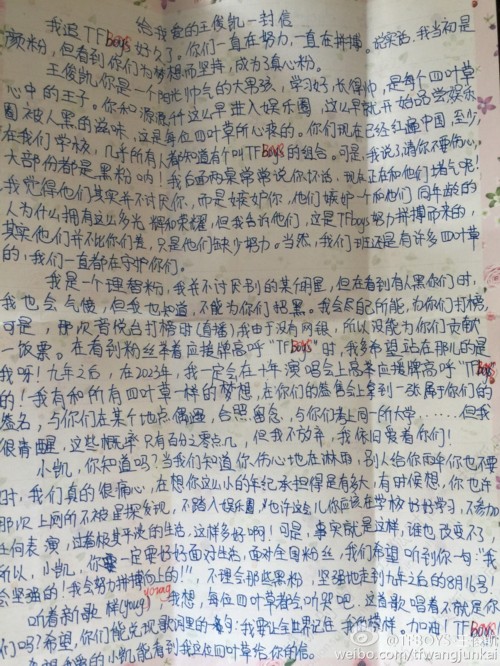 给我爱的王俊凯一封信
我追TFboys好久了。你们一直在努力,一直在拼搏。说实话,我当初是
颜粉,但看到你们为梦想而坚持,成为了真心粉。
王俊凯,你是一个阳光帅气的大男孩,学习好,长得帅,是每个四叶草
心中的王子。你和源源他们这么早进入娱乐圈,这么早就开始品尝娱乐
圈被人黑的滋味,这是每位四叶草所心疼的。你们现在已经红遍中国,至少
在我们学校,几乎所有人都知道有个叫TFboys的组合。可是,我说了请你不要伤心,
大部份都是黑粉哟!我后面两桌常常说你坏话,现在正在和他们堵气呢!
我觉得他们其实并不讨厌你,而是嫉妒你,他们嫉妒一个和他们同年龄的
人为什么拥有这么多光辉和荣耀,但我告诉他们,这是TFboys努力拼搏而来的,
其实他们并不比你们差,只是他们缺少努力。当然,我们班还是有许多四叶草
的,我们一直都在守护你们。
我是一个理智粉,我并不讨厌别的某个明星,但在看到有人黑你们时,
我也会气愤,但我也知道,不能为你们招黑。我会尽自己所能,为你们打榜,
可是,那次音悦台打榜时(直播)我由于没有网银,所以没能为你们贡献
一饭票。在看到粉丝举着应援牌高呼“TFboys”时,我多希望站在那儿的是
我呀!九年之后,在2023年,我一定会在十年演唱会上高举应援牌高呼“TFboys
的!我有和所有四叶草一样的梦想,在你们的签售会上拿到一张属于你们的
签名,与你们在某个地点偶遇,合照留念,与你们考上同一所大学……但我
很清醒,这些概率只有百分之零点几,但我不放弃,我依旧爱着你们!
小凯,你知道吗?当我们知道你伤心地在淋雨,别人给你雨伞你也不要
时,我们真的很痛心,在想你这么小的年纪承担得是有多大,有时候想,你也许
那次上网而不被星探发现,不踏入娱乐圈,也许这会儿你应该在学校好好学习,不参加
任何表演,过着极其平淡的生活,这样多好啊!可是,事实就是这样,谁也改变不了,
所以,小凯,你一定要好好面对生活,面对全国粉丝,我们希望听到你一句:“我
会坚强的!我会努力拼搏向上的!”,不理会那些黑粉,坚强地走到九年之后的8月6号,
听着新歌《样》(young),我想,每位四叶草都会听哭吧。这首歌唱着不就是你
们吗?希望,你们能兑现歌词里的一句:我要让全世界记住我的模样,加油!TFboys
希望我的小凯能看到我这位四叶草给你的信。
@TFBOYS-王俊凯
weibo.com/tfwangjunkai